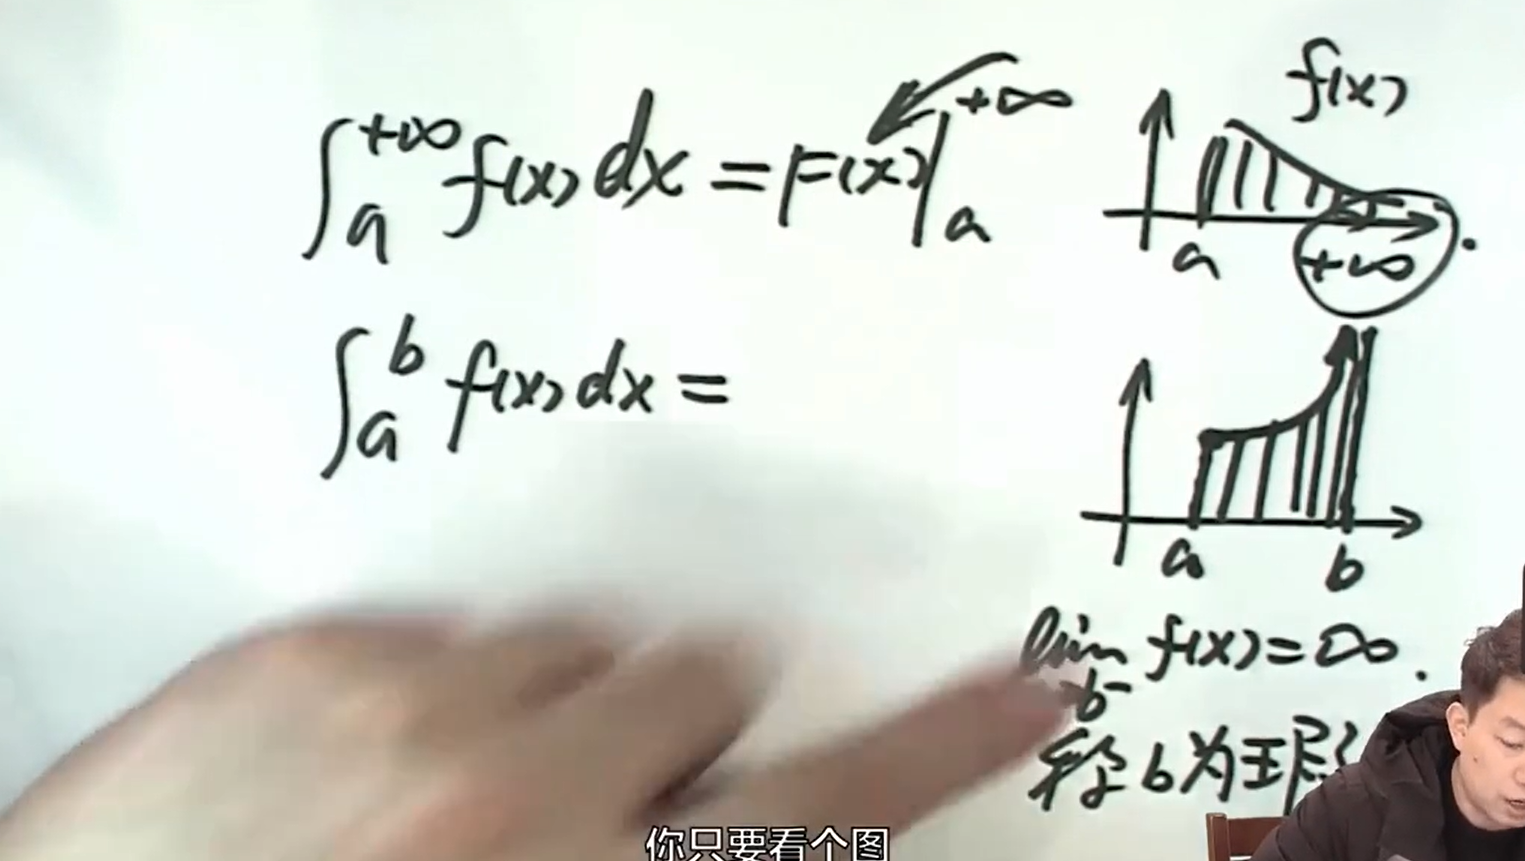 ∫ₐ^{+∞} f(x) dx = F(x) |ₐ^{+∞}
f(x)
a +∞
∫ₐ^b f(x) dx =
a b
lim f(x) = ∞.
b⁻
称 b 为瑕
你只要看个图